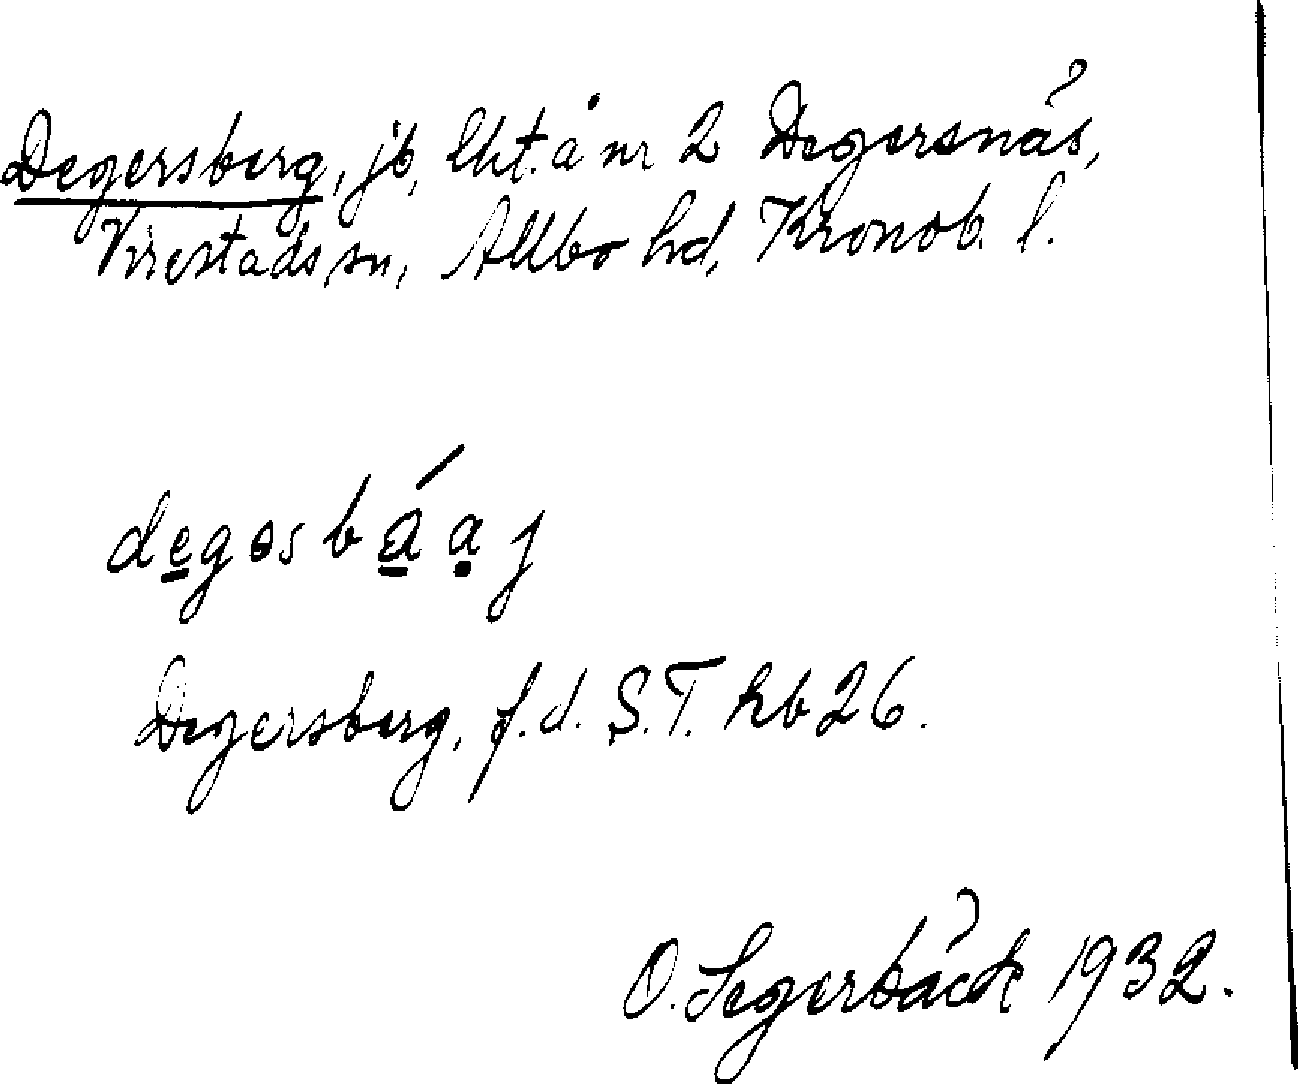 Degersberg, jb, lht. å nr 2 Degersnäs,
Virestads sn, Allbo hd, Kronob. l.
degəsbáaj
Degersberg, f.d. S.T. hb 26.
O. Segerbäck 1932.